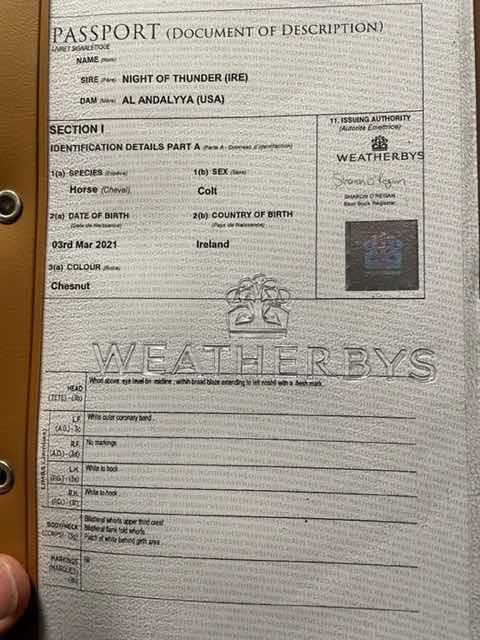 PASSPORT (DOCUMENT OF DESCRIPTION)
LIVRET SIGNALÉTIQUE
NAME (Nom)
SIRE (Père) NIGHT OF THUNDER (IRE)
DAM (Mère) AL ANDALYYA (USA)
SECTION I
IDENTIFICATION DETAILS PART A (Partie A - Données d'identification)
1(a) SPECIES (Espèce) 1(b) SEX (Sexe)
Horse (Cheval) Colt
2(a) DATE OF BIRTH 2(b) COUNTRY OF BIRTH
(Date de Naissance) (Pays de Naissance)
03rd Mar 2021 Ireland
3(a) COLOUR (Robe)
Chesnut
11. ISSUING AUTHORITY
(Autorité Émettrice)
WEATHERBYS
Sharon O'Regan
SHARON O'REGAN
Stud Book Registrar
WEATHERBYS
HEAD
(TETE) - (3b)
Whorl above eye level on midline, within broad blaze extending to left nostril with a flesh mark.
LIMBS
L.F.
(A.G.) - 3c
White outer coronary band
R.F.
(A.D.) - (3d)
No markings
L.H.
(P.G.) - (3e)
White to hock
R.H.
(P.D.) - (3f)
White to hock
BODY/NECK
(CORPS) - (3g)
Bilateral whorls upper third crest
Bilateral flank fold whorls
Patch of white behind girth area
MARKINGS
(MARQUES)
Nil